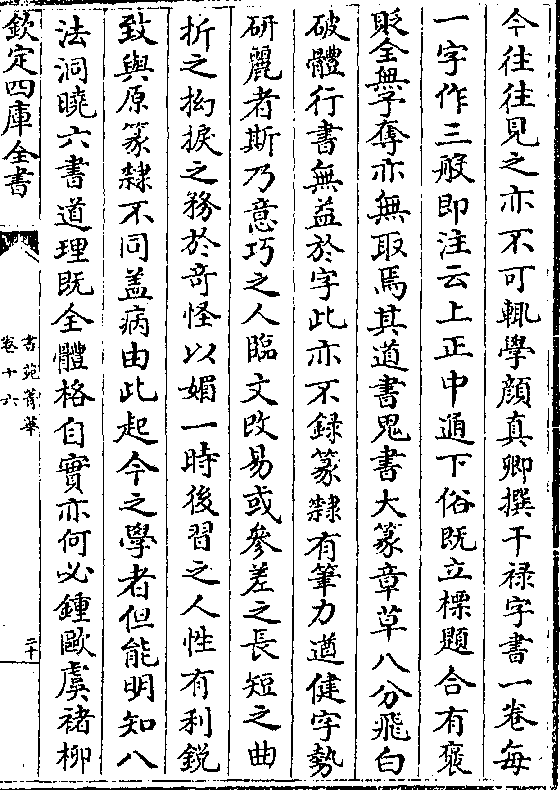 今往往見之亦不可輒學顔真卿撰干禄字書一卷每
一字作三般即注云上正中通下俗既立標題合有褒
貶全無予奪亦無取焉其道書鬼書大篆章草八分飛白
破體行書無益於字此亦不録篆隸有筆力遒健字勢
研麗者斯乃意巧之人臨文改易或參差之長短之曲
折之拗捩之務於奇怪以媚一時後習之人性有利鋭
致與原篆隸不同盖病由此起今之學者但能明知八
法洞曉六書道理既全體格自實亦何必鍾歐虞褚柳
欽定四庫全書
書苑菁華
卷十六
二十